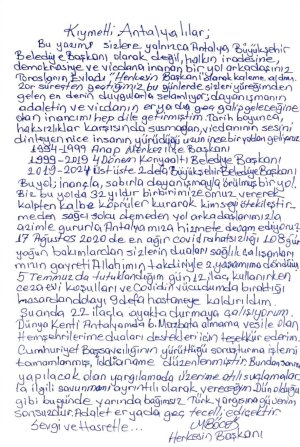 Kıymetli Antalyalılar,
Bu yazımı sizlere yalnızca Antalya Büyükşehir
Belediye Başkanı olarak değil, halkın iradesine,
demokrasiye ve vicdana inanan bir yol arkadaşınız
Torosların Evladı "Herkesin Başkanı" olarak kaleme aldım.
Zor süreçten geçtiğimiz bu günlerde sizleri yüreğimden
gelen en derin duygularla selamlıyor, dayanışmanın
adaletin ve vicdanın er ya da geç galip geleceğine
olan inancımı hep dile getirmiştim. Tarih boyunca,
haksızlıklar karşısında susmadan, vicdanının sesini
dinleyen nice insanın yürüdüğü uzun ince bir yoldan geliyoruz
1994-1999 Anap Merkez İlçe Başkanı
1999-2019 4 Dönem Konyaaltı Belediye Başkanı
2019-2024 Üst üste 2 defa Büyükşehir Belediye Başkanı
Bu yol inançla, sabırla dayanışmayla örülmüş bir yol.
Biz bu yolda 32 yıldır birbirimize omuz vererek
kalpten kalbe köprüler kurarak kimseyi ötekileştir-
meden sağcı solcu demeden yol arkadaşlarımızla
azimle gururla Antalyamıza hizmete devam ediyoruz
17 Ağustos 2020 de en ağır covid rahatsızlığı 108 gün
yoğun bakımlardan sizlerin duaları sağlık çalışanları-
mının gayreti Allahımın takdiriyle 2. yaşamıma döndüm
5 Temmuz da tutuklandığım gün 12 ilaç kullanırken
cezaevi koşulları ve Covidin vücudumda bıraktığı
hasarlardan dolayı 9 defa hastaneye kaldırıldım.
Şuanda 22 ilaçla ayakta durmaya çalışıyorum.
Dünya Kenti Antalyamda 6. Mazbata almama vesile olan
Hemşehrilerime duaları destekleri için teşekkür ederim.
Cumhuriyet Başsavcılığının yürüttüğü soruşturma işlemi
tamamlanmış, İddianame düzenlenmiştir. Bundan sonra
yapılacak olan yargılamada üzerime atılı suçlamalar-
la ilgili savunmamı ayrıntılı olarak vereceğim. Dün olduğu
gibi bugünde yanında bağımsız Türk yargısına güvenim
sonsuzdur. Adalet er yada geç tecelli edicektir.
Sevgi ve Hasretle...
Herkesin Başkanı